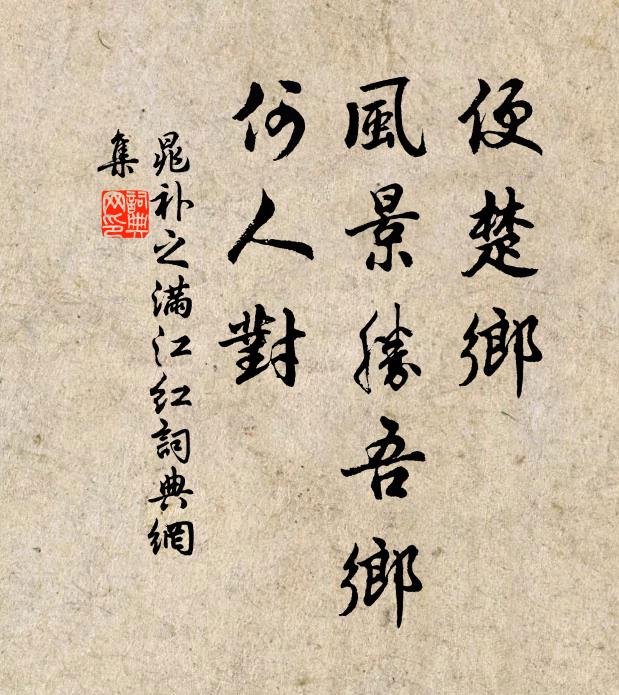 便楚鄉
風景勝吾鄉
何人對
晁补之滿江红詞典網
集
詞典
网印